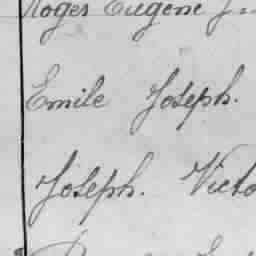 Roger Eugene
Emile Joseph.
Joseph. Victo